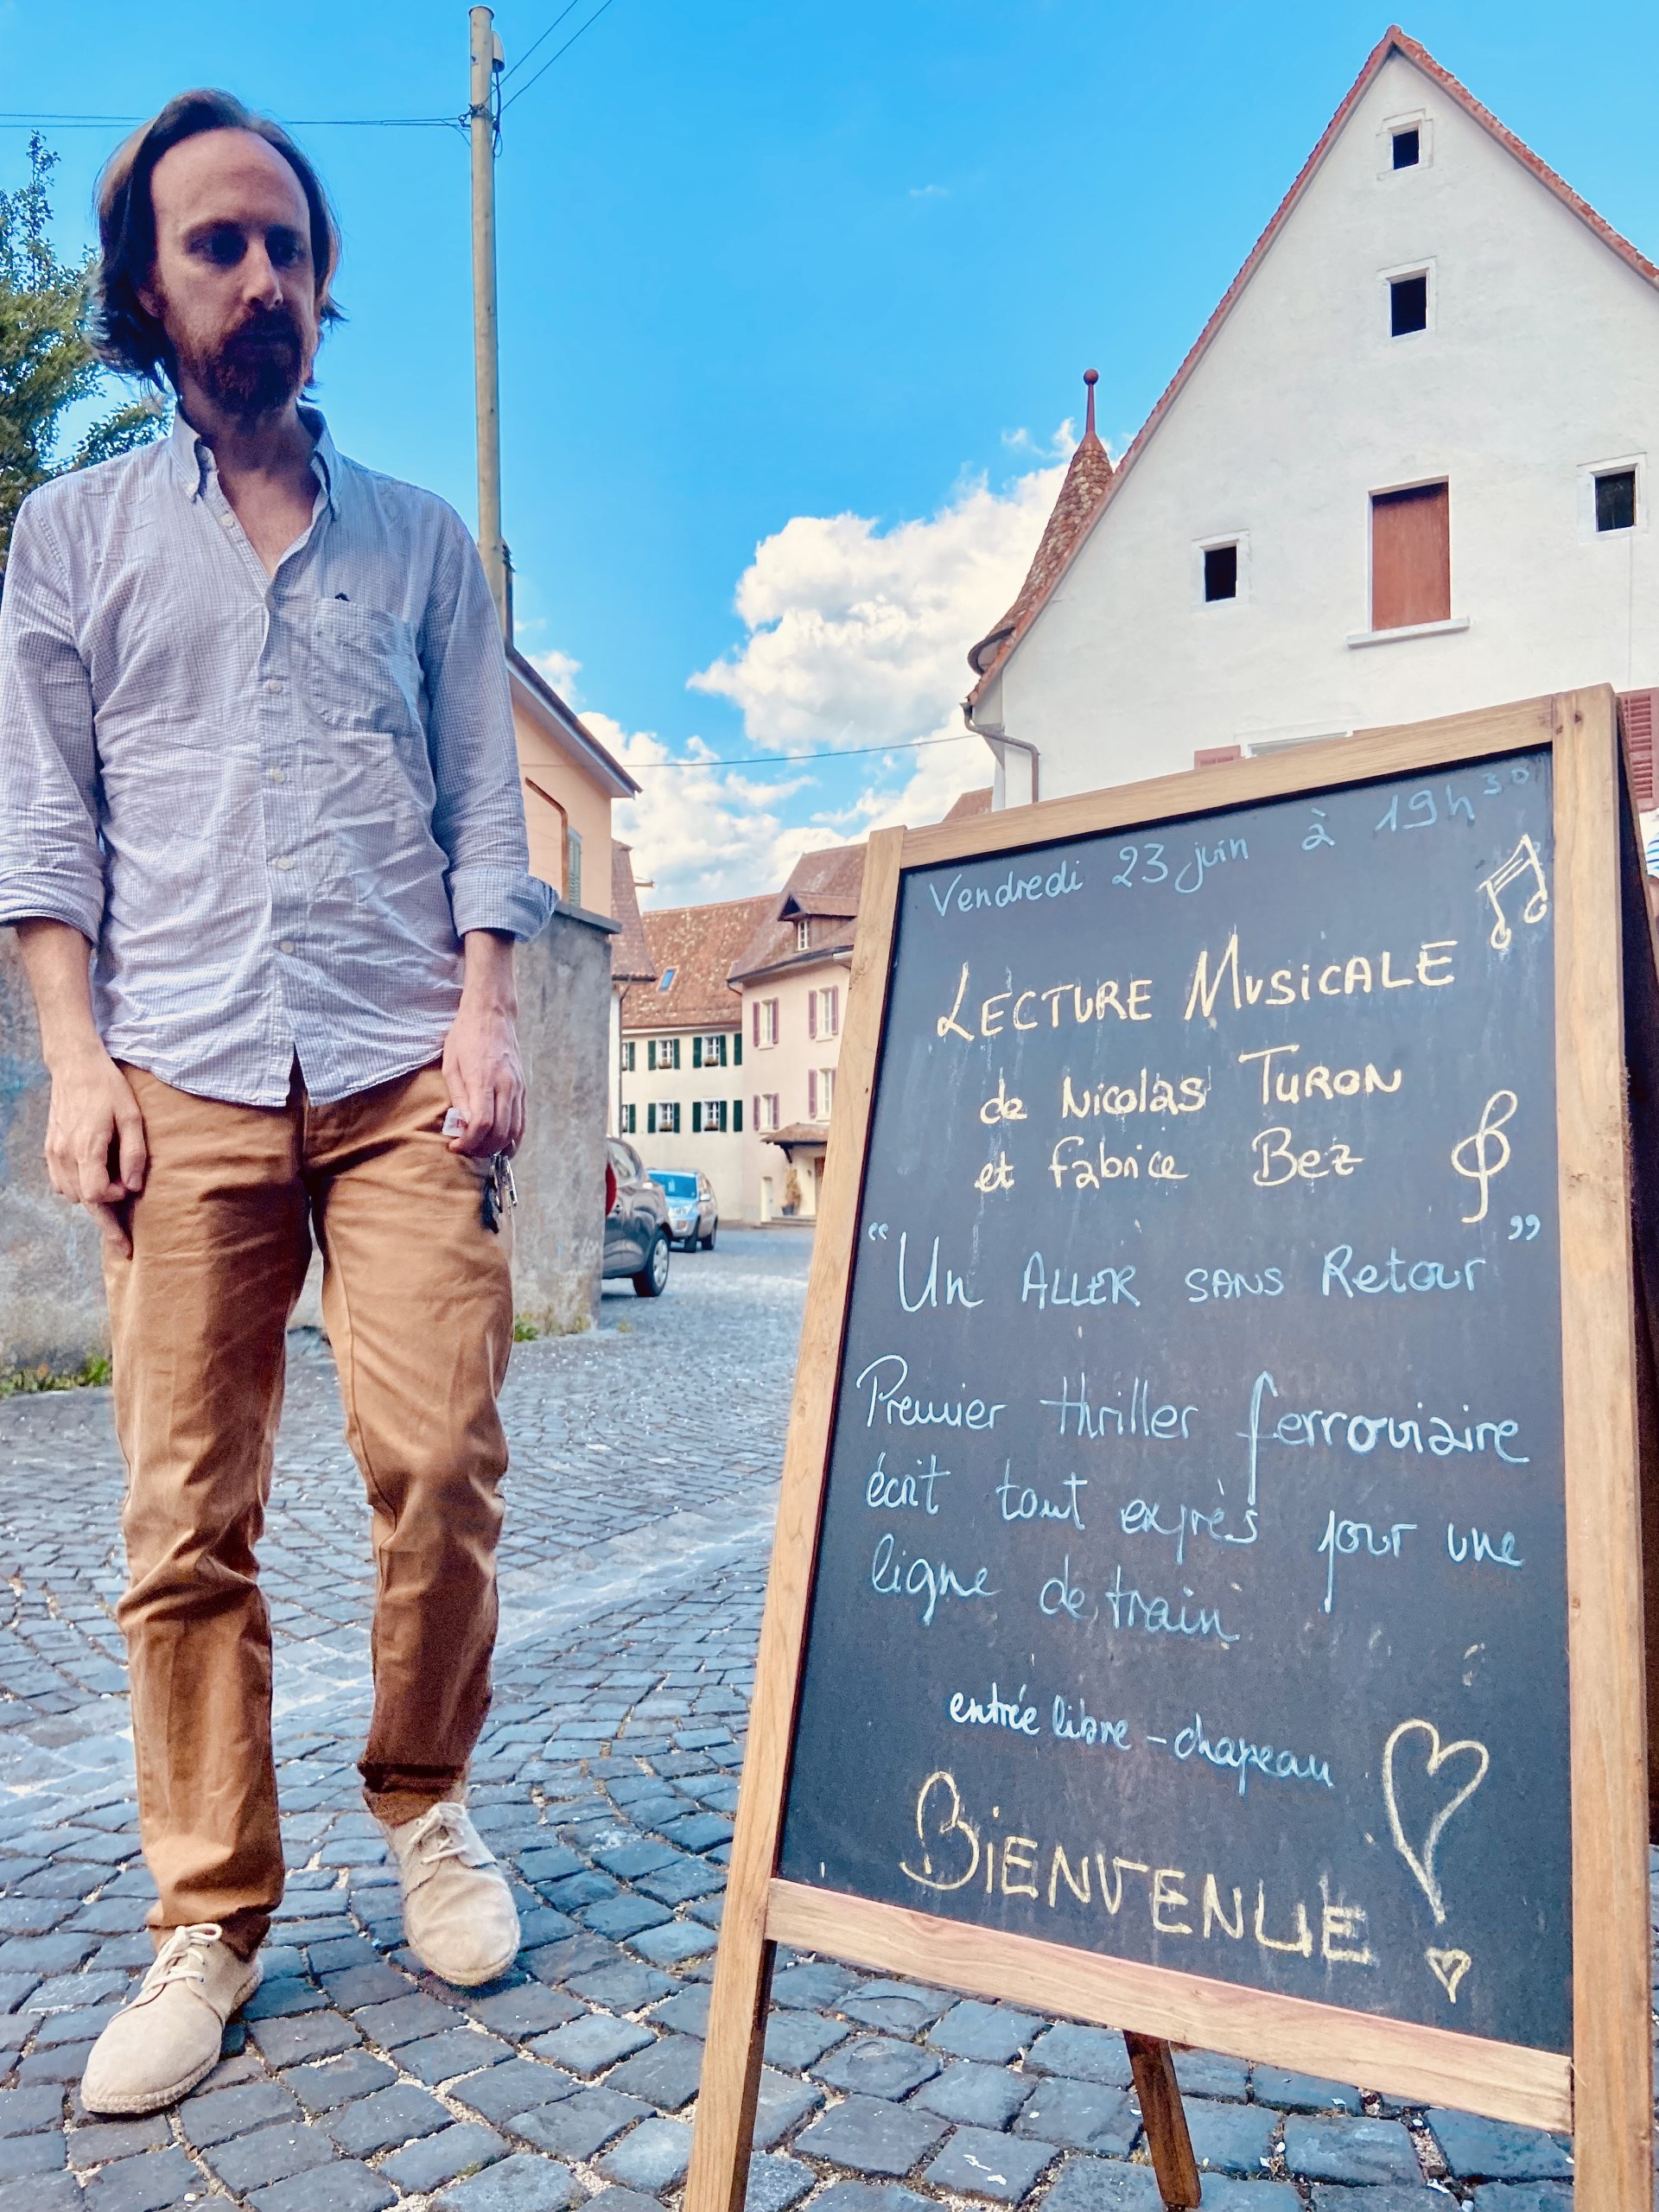 Vendredi 23 juin à 19h30
LECTURE MUSICALE
de Nicolas TURON
et fabrice Bez
"Un ALLER SANS Retour"
Premier thriller ferroviaire
écrit tout exprès pour une
ligne de train
entrée libre - chapeau
BIENVENUE